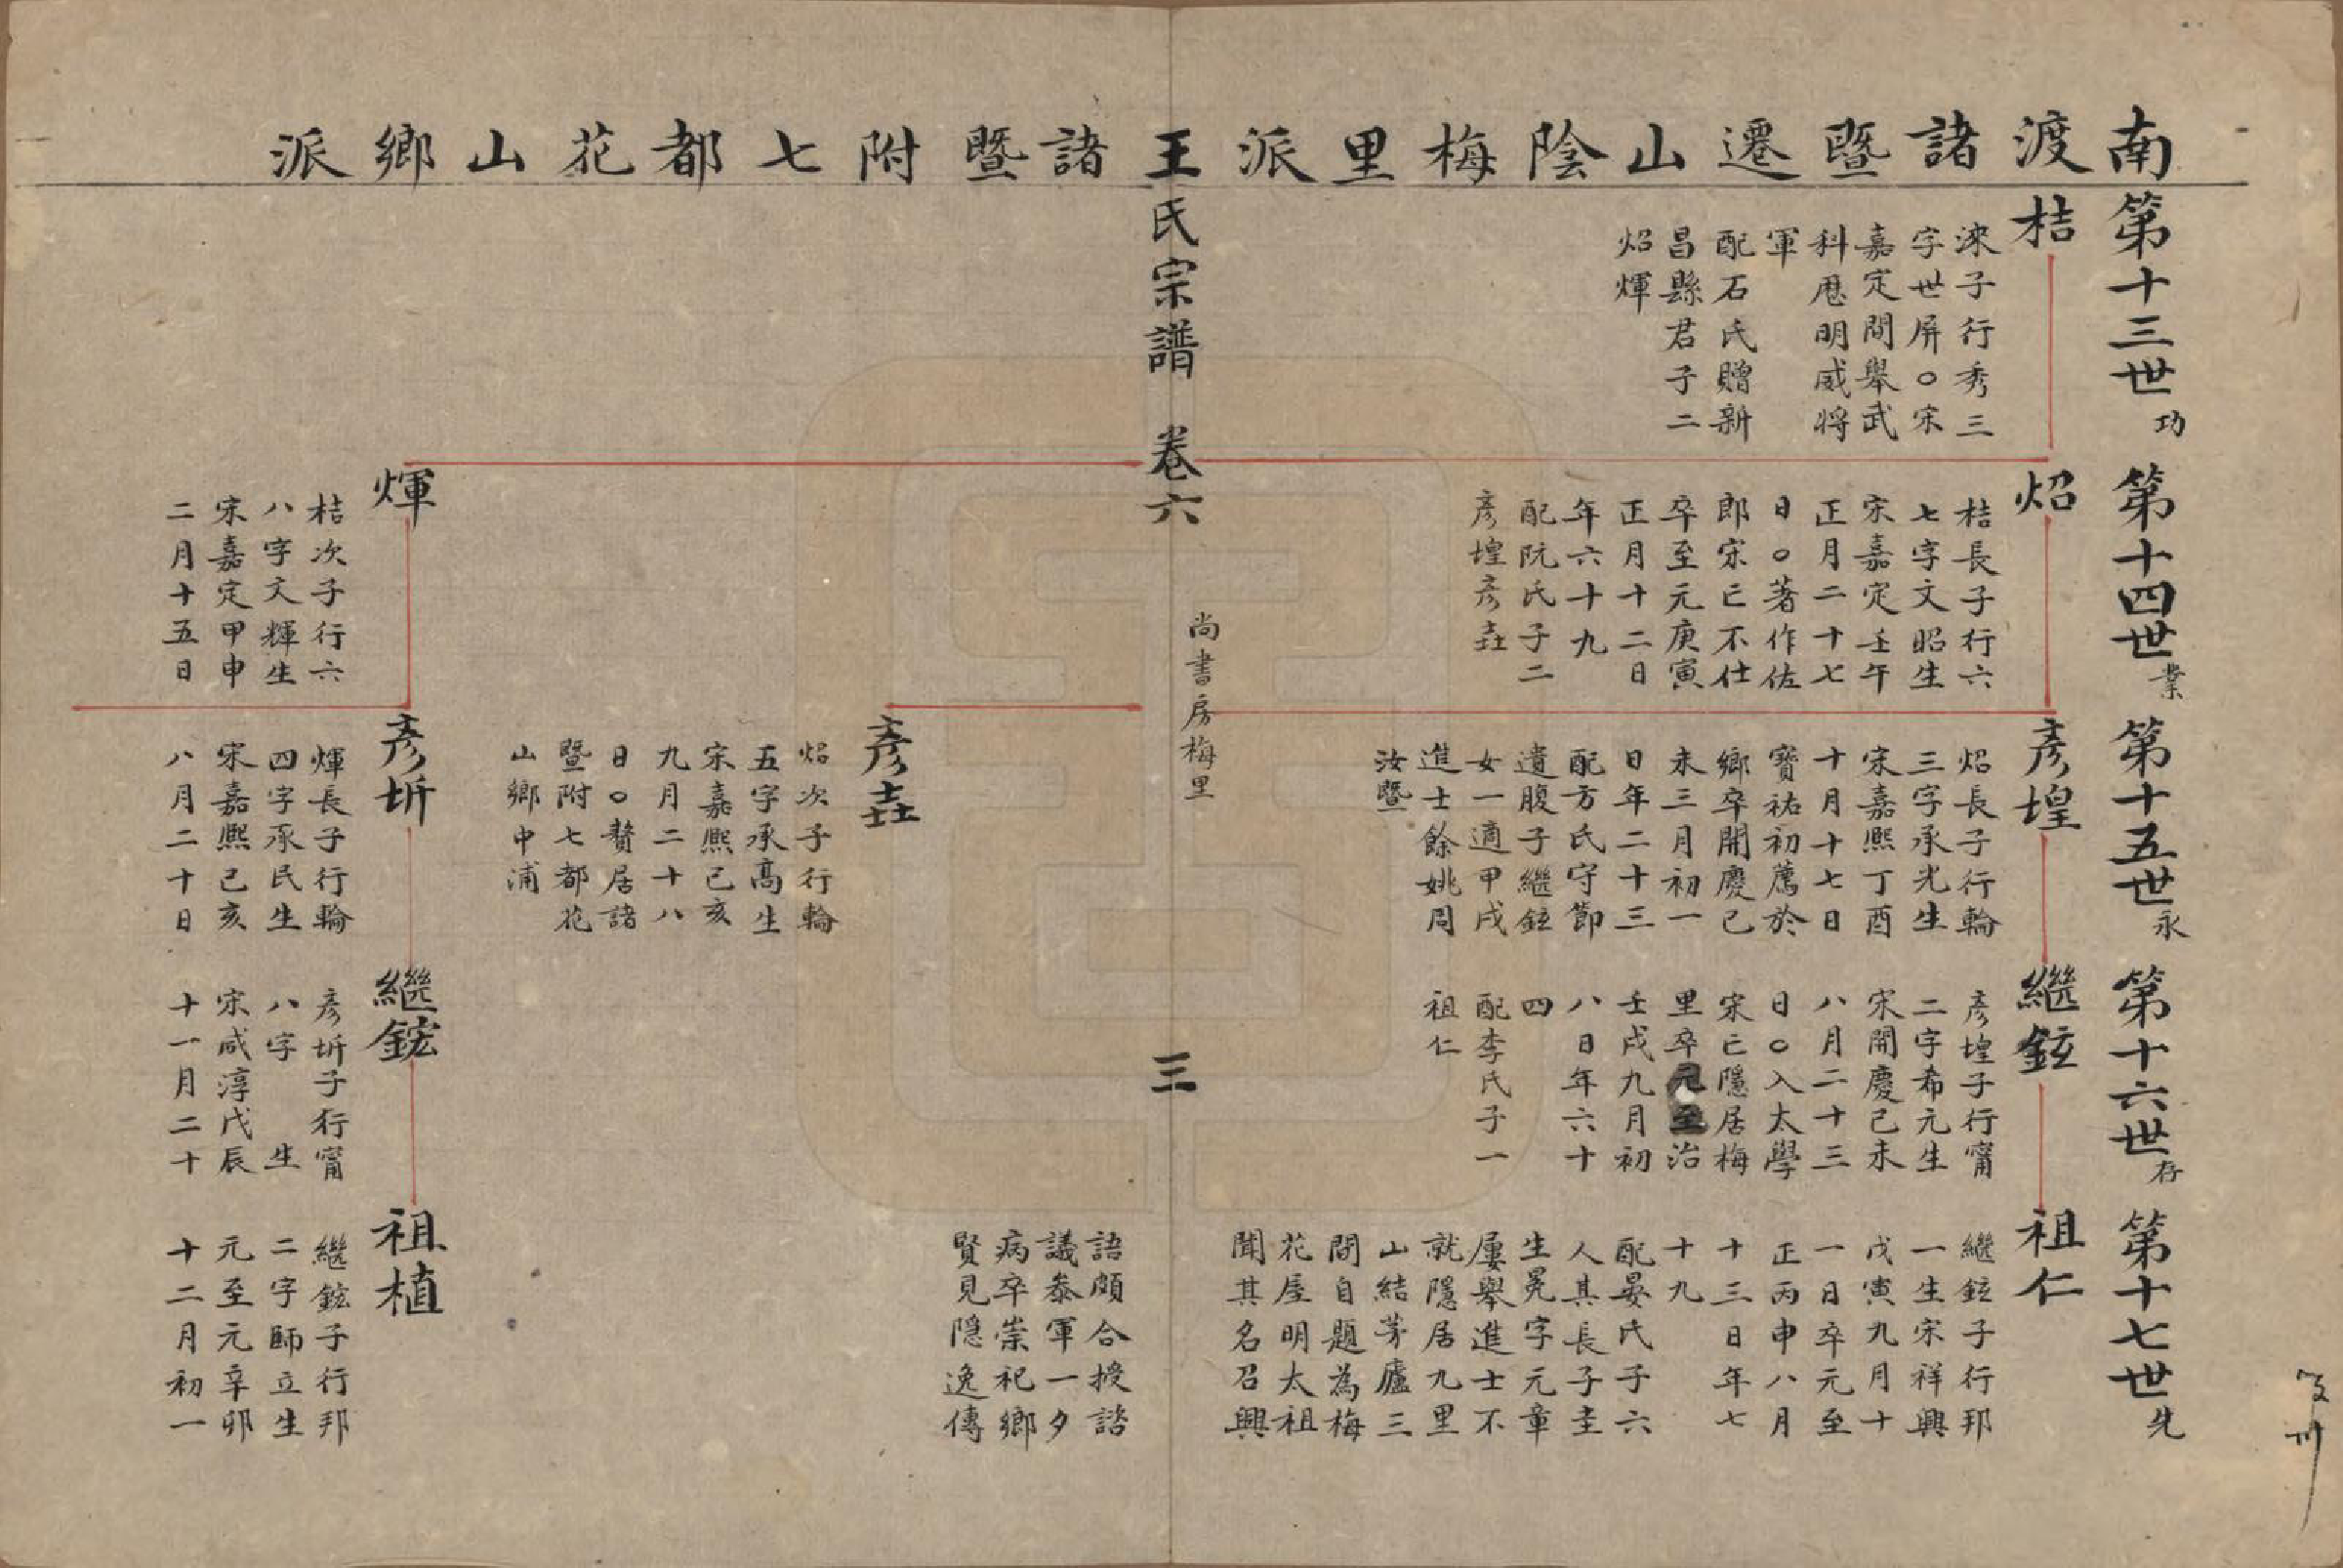 南渡諸暨遷山陰梅里派王諸暨附七都花山鄉派
第十三世功
桔
淶子行秀三
字世屏○宋
嘉定間舉武
科歷明威將
軍
配石氏贈新
昌縣君子二
炤煇
第十四世業
炤
桔長子行六
七字文昭生
宋嘉定壬午
正月二十七
日○著作佐
郎宋亡不仕
卒至元庚寅
正月十二日
年六十九
配阮氏子二
彥堭彥壵
煇
桔次子行六
八字文輝生
宋嘉定甲申
二月十五日
第十五世永
彥堭
炤長子行輪
三字承光生
宋嘉熙丁酉
十月十七日
寶祐初薦於
鄉卒開慶己
未三月初一
日年二十三
配方氏守節
遺腹子繼鉉
女一適甲戌
進士餘姚周
汝暨
彥壵
炤次子行輪
五字承高生
宋嘉熙己亥
九月二十八
日○贅居諸
暨附七都花
山鄉中浦
彥圻
煇長子行輪
四字承民生
宋嘉熙己亥
八月二十日
第十六世存
繼鉉
彥堭子行甯
二字希元生
宋開慶己未
八月二十三
日○入太學
宋亡隱居梅
里卒元至治
壬戌九月初
八日年六十
四
配李氏子一
祖仁
繼鋐
彥圻子行甯
八字 生
宋咸淳戊辰
十一月二十
第十七世先
祖仁
繼鉉子行邦
一生宋祥興
戊寅九月十
一日卒元至
正丙申八月
十三日年七
十九
配晏氏子六
人其長子圭
生冕字元章
屢舉進士不
就隱居九里
山結茅廬三
間自題為梅
花屋明太祖
聞其名召興
語頗合授諮
議參軍一夕
病卒崇祀鄉
賢見隱逸傳
祖植
繼鋐子行邦
二字師立生
元至元辛卯
十二月初一
王氏宗譜 卷六
尚書房梅里
三